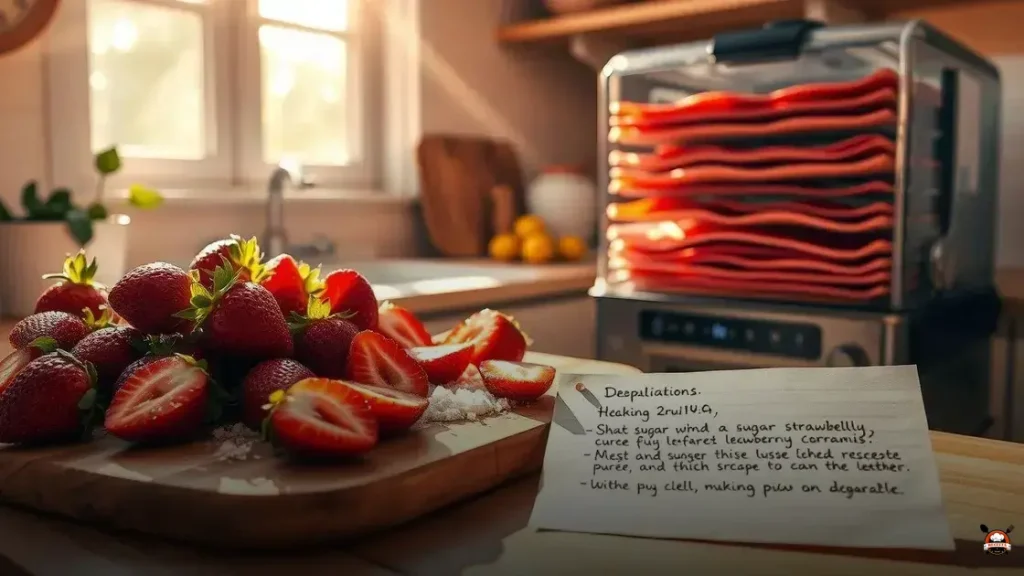 Depuliations.
Heaking 2ruilV.G,
- Shat sugar wind a sugar strawbellly,
curee fuy lerfaret lecuwberry corramis?
- Mest and sunger thise lusse lched resceste
puree, and thich srcape to can the letther.
- Withe puy clell, mukiing puw on degaratle.